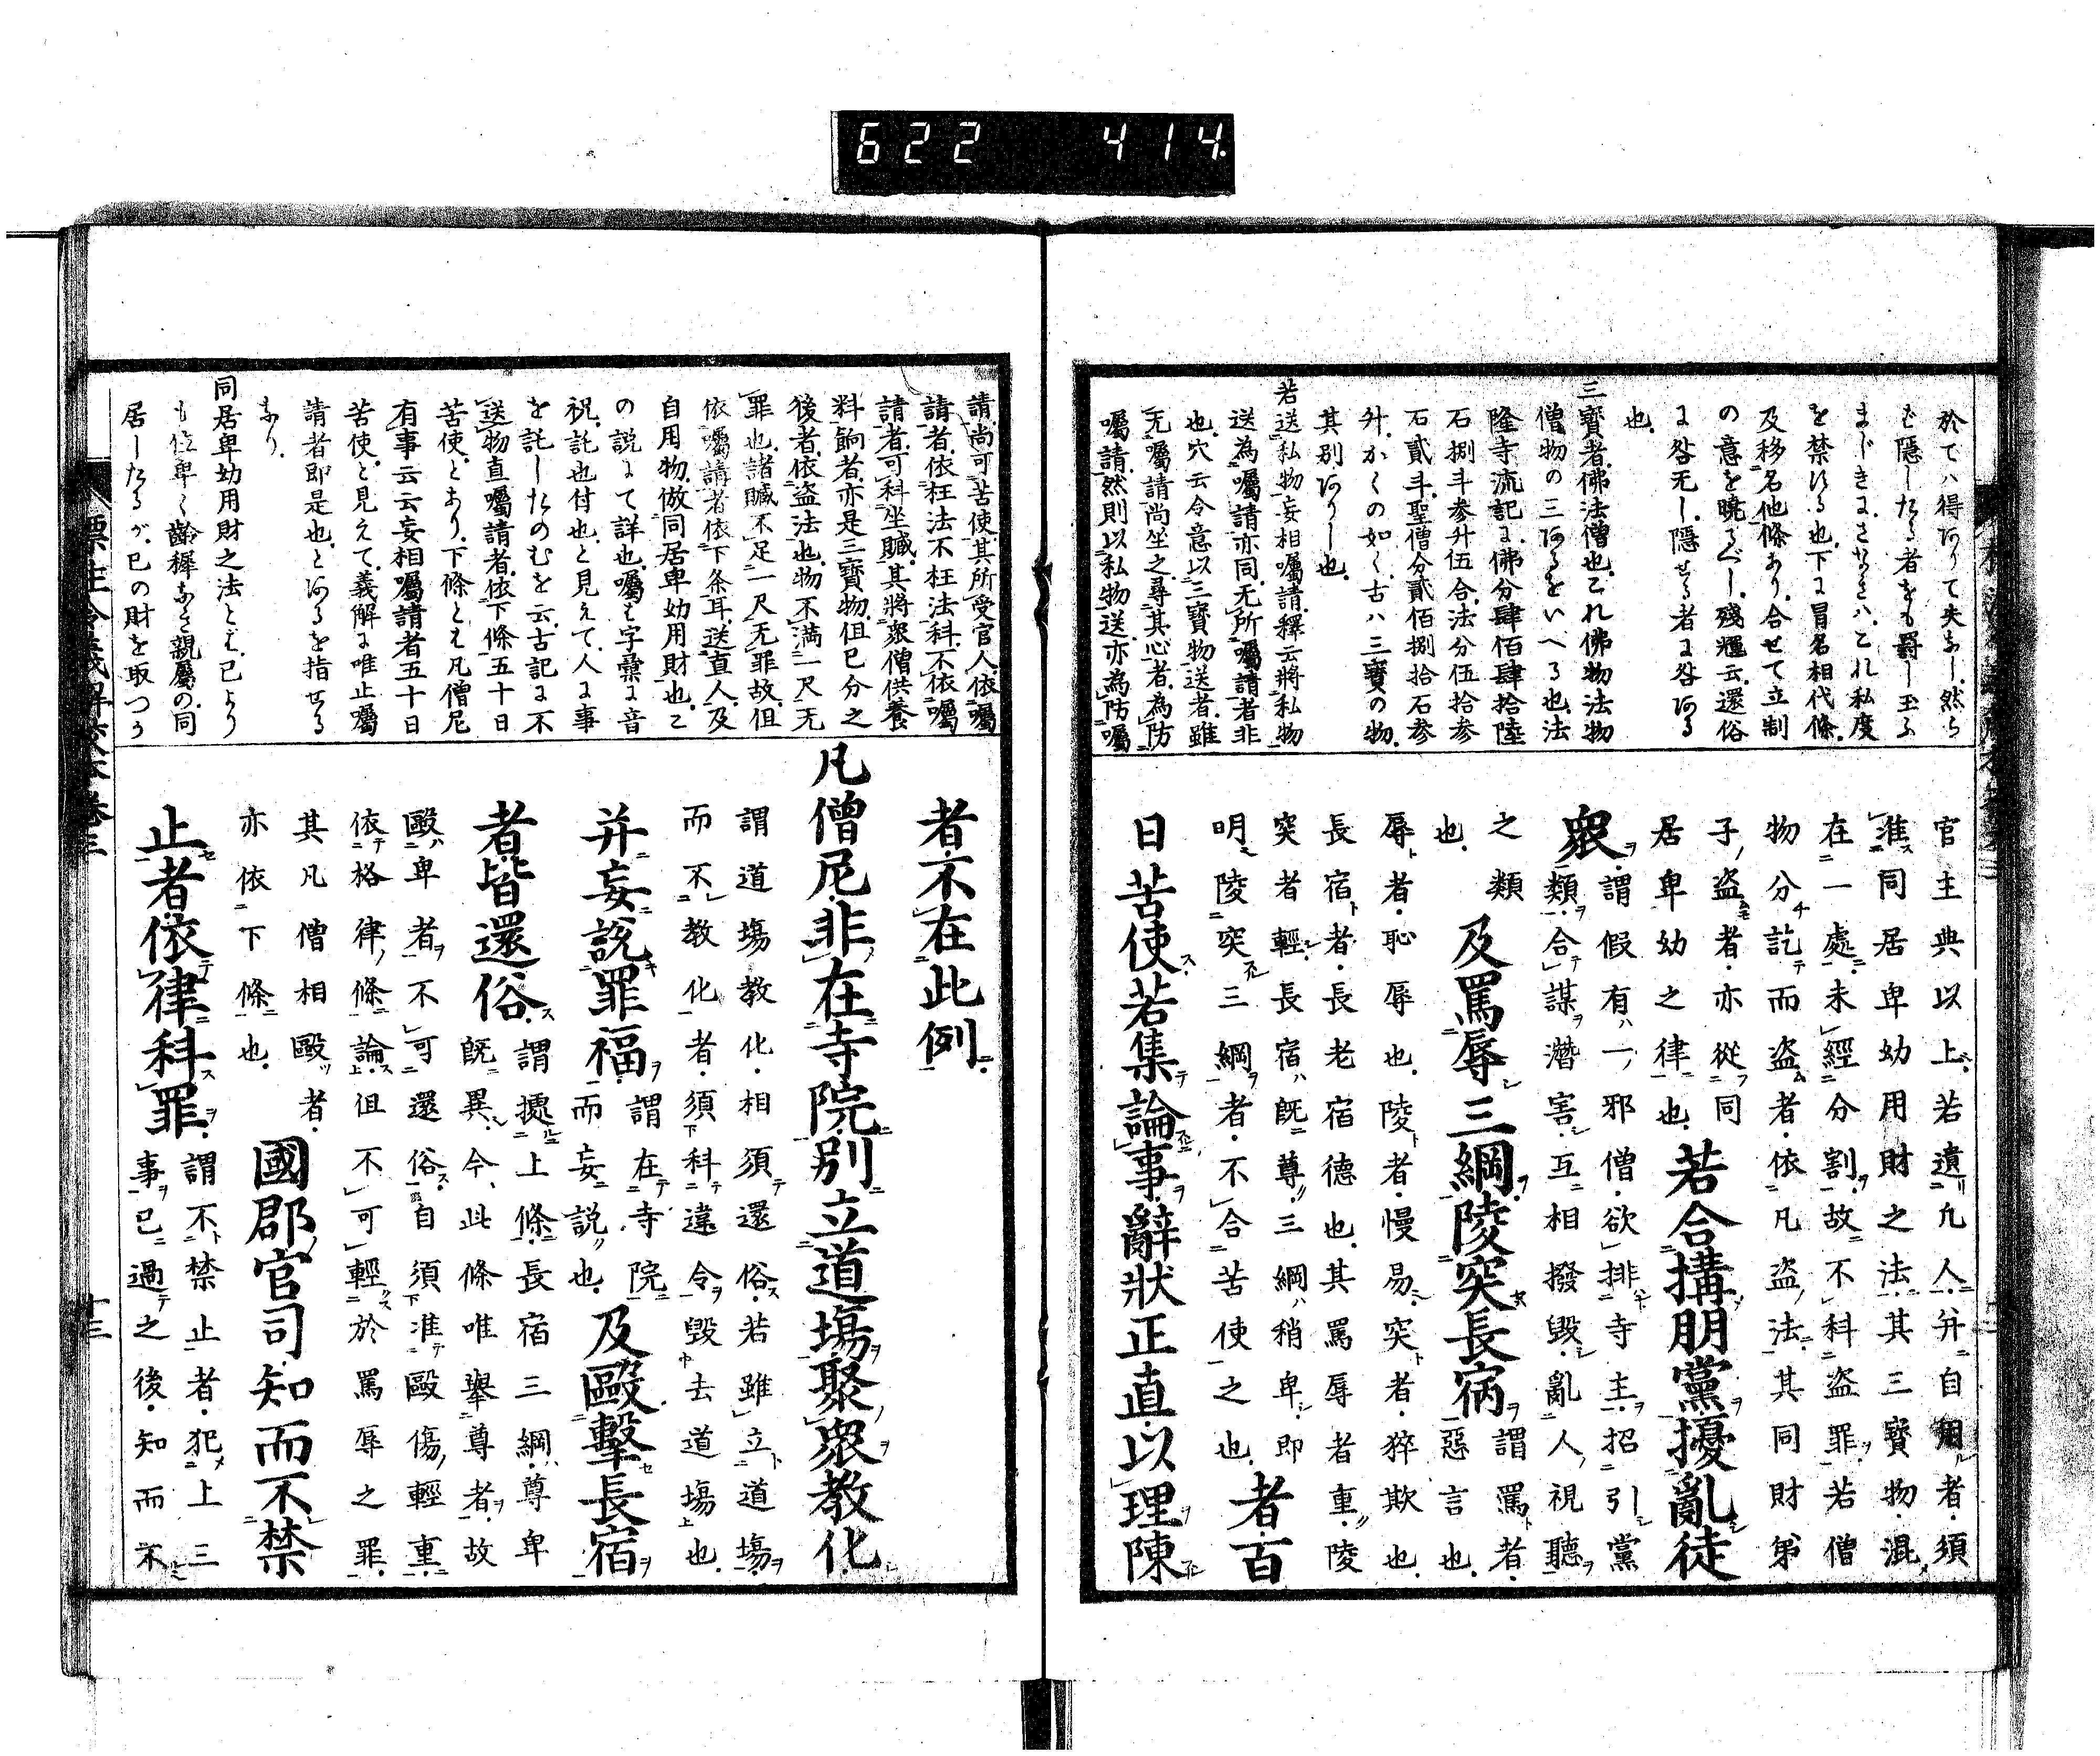 622 414.
於てハ得ありて失なし然ら
を禁ずる也下に冒名相代條
及移名他條あり合せて立制
の意を曉るべし殘糧云還俗
に咎无し隱せる者に咎ある
也
三寳者佛法僧也これ佛物法物
僧物の三あるをいへる也法
隆寺流記に佛分肆佰肆拾陸
石捌斗参升伍合法分伍拾参
石貳斗聖僧分貳佰捌拾石参
升かくの如く古ハ三寳の物
其別ありし也
若送私物妄相囑請釋云將私物
送為囑請亦同无所囑請者非
也穴云令意以三寳物送者雖
无囑請尚坐之尋其心者為防
囑請然則以私物送亦為防囑
官主典以上若遺九人并自用者須
准同居卑幼用財之法其三寳物混
在一處未經分割故不科盗罪若僧
物分訖而盗者依凡盗法其同財弟
子盗者亦從同
居卑幼之律也
若合搆朋黨擾亂徒
衆
謂假有一邪僧欲排寺主招引黨
類合謀潛害互相撥毀亂人視聽
之類
也
及罵辱三綱陵突長宿
謂罵者
惡言也
辱者恥辱也陵者慢易突者猝欺也
長宿者長老宿德也其罵辱者重陵
突者輕長宿既尊三綱稍卑即
明陵突三綱者不合苦使之也
者百
日苦使若集論事辭狀正直以理陳
請尚可苦使其所受官人依囑
請者依枉法不枉法科不依囑
請者可科坐贓其將衆僧供養
料餉者亦是三寳物但已分之
後者依盗法也物不滿一尺无
罪也諸贓不足一尺无罪故但
依囑請者依下条耳送直人及
自用物倣同居卑幼用財也こ
の説にて詳也囑も字彙に音
祝託也付也と見えて人に事
を託したのむを云古記に不
送物直囑請者依下條五十日
苦使とあり下條とハ凡僧尼
有事云云妄相囑請者五十日
苦使と見えて義解に唯止囑
請者即是也とあるを指せる
あり
同居卑幼用財之法とハ已より
も位卑く齡穉なき親屬の同
居したるが已の財を取つか
者不在此例
凡僧尼非在寺院別立道塲聚衆教化
謂道塲教化相須還俗若雖立道塲
而不教化者須科違令毀去道塲也
并妄説罪福
謂在寺院
而妄説也
及毆擊長宿
者皆還俗
謂據上條長宿三綱尊卑
既異今此條唯擧尊者故
毆卑者不可還俗自須准毆傷輕重
依格律條論但不可輕於罵辱之罪
其凡僧相毆者
亦依下條也
國郡官司知而不禁
止者依律科罪
謂不禁止者犯上三
事已過之後知而不
標注令義解校本卷三
十三